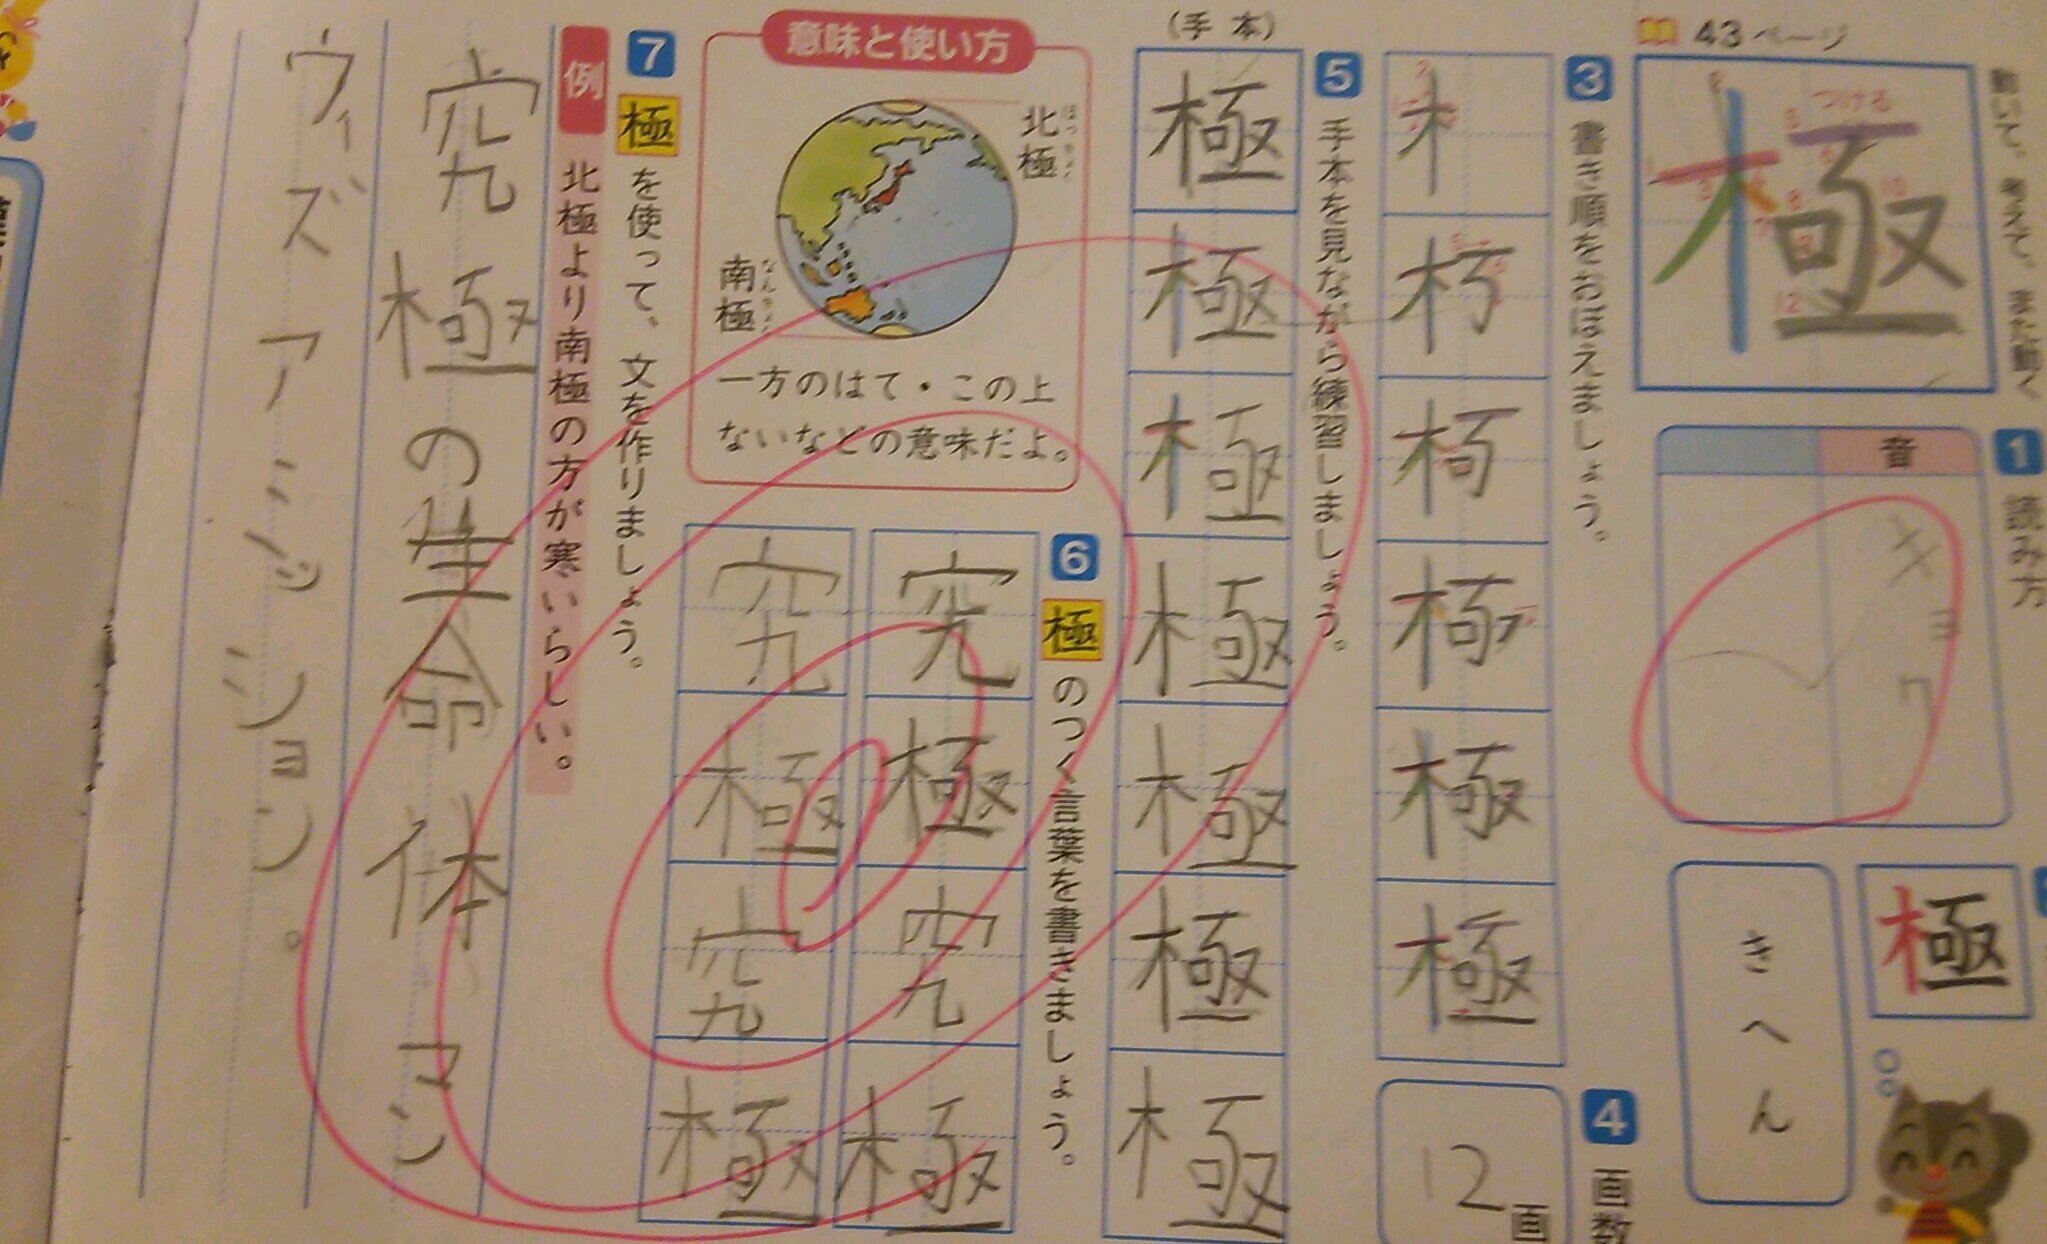 動いて、考えて、また動く
43ページ
つける
極
1 読み方
音
キョク
極
きへん
3 書き順をおぼえましょう。
極
極
4 画数
12画
5 手本を見ながら練習しましょう。
(手本)
極
極
極
極
極
極
極
意味と使い方
北極
ほっきょく
南極
なんきょく
一方のはて・この上
ないなどの意味だよ。
6 極のつく言葉を書きましょう。
究極究極
究極究極
7 極を使って、文を作りましょう。
例 北極より南極の方が寒いらしい。
究極の生命体マン
ウィズアミッション。